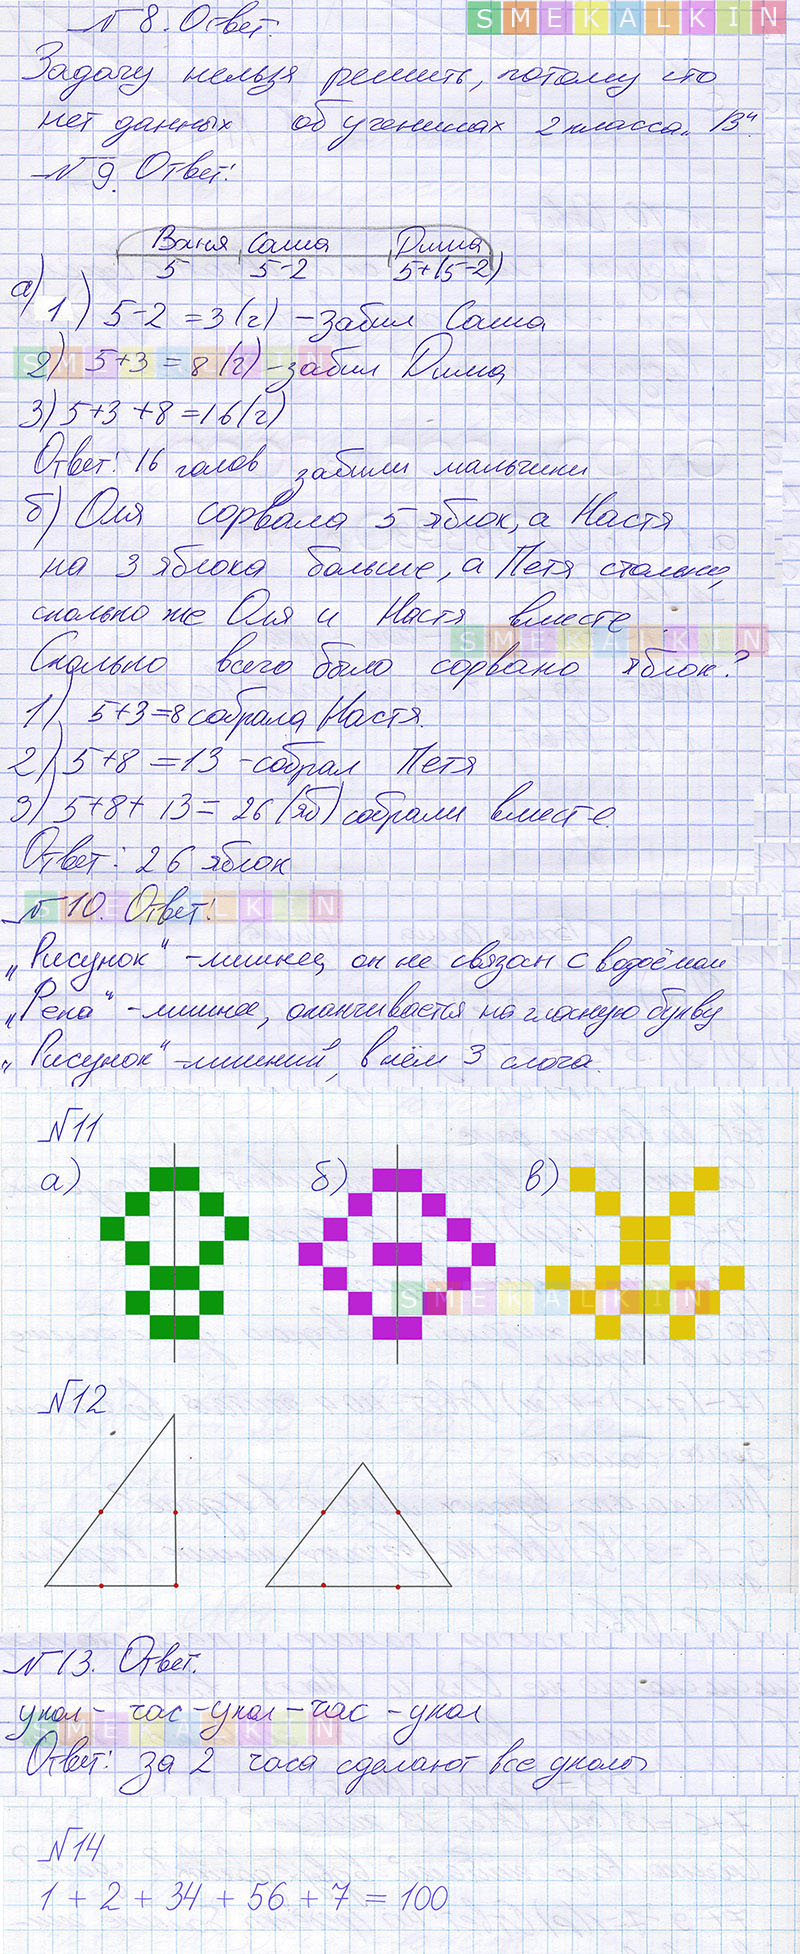 № 8. Ответ.
SMEKALKIN
Задачу нельзя решить, потому что
нет данных об учениках 2 класса „В".
№ 9. Ответ:
Ваня Саша Дима
5 5-2 5+(5-2)
а)
1) 5-2 = 3 (г) - забил Саша
SMEKALKIN
2) 5+3 = 8 (г) - забил Дима
3) 5+3+8=16(г)
Ответ: 16 голов забили мальчики
б) Оля сорвала 5 яблок, а Настя
на 3 яблока больше, а Петя столько,
сколько же Оля и Настя вместе.
SMEKALKIN
Сколько всего было сорвано яблок?
1) 5+3=8 собрала Настя.
2) 5+8 = 13 - собрал Петя
3) 5+8+13= 26 (яб) собрали вместе.
Ответ: 26 яблок
SMEKALKIN
№ 10. Ответ:
„Рисунок" - лишнец, он не связан с водоёмом
„Река" - лишнее, оканчивается на гласную букву
„Рисунок" - лишний, в нём 3 слога.
№11
а) б) в)
SMEKALKIN
№12
№ 13. Ответ.
укол - час - укол - час - укол
SMEKALKIN
Ответ: за 2 часа сделают все уколы
№14
1 + 2 + 34 + 56 + 7 = 100